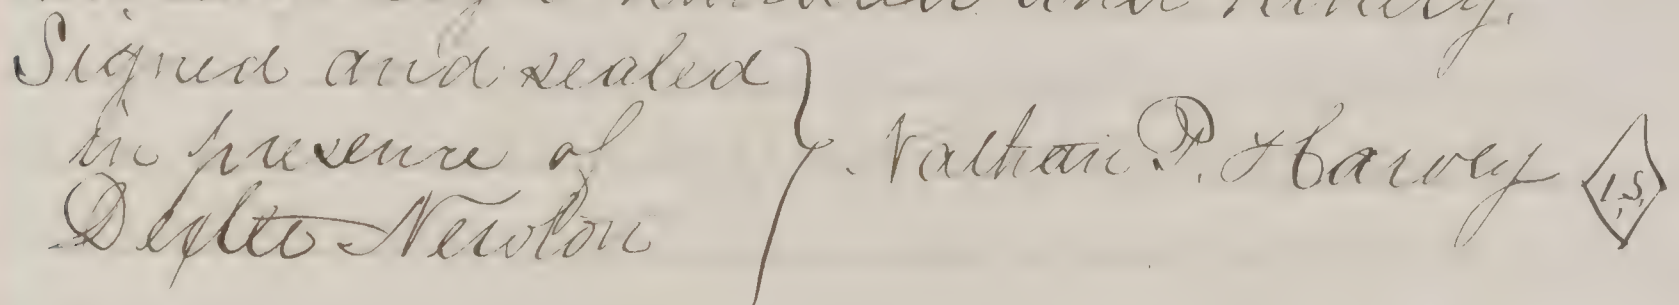 hundred and ninety.
Signed and sealed
in presence of
Dexter Newton
Nathan P. Harvey
L.S.